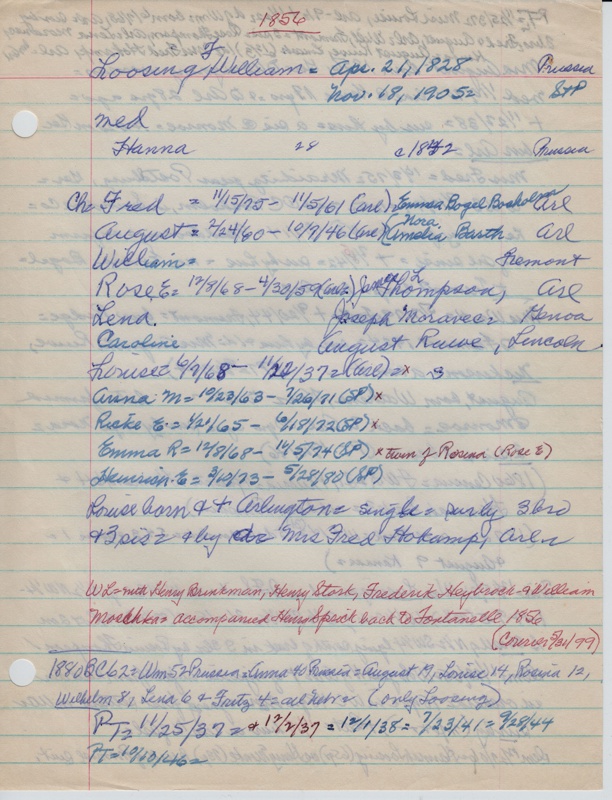 1856
Loosing, F William = Apr. 21, 1828 Prussia
Nov. 18, 1905 = StP
med
Hanna 28 c1842 Prussia
Ch Fred = 11/15/75 - 11/5/61 (arl) Emma Bogel Boeholm Arl
August = 2/24/60 - 10/7/46 (arl) Nora, Amelia Barth Arl
William = Fremont
Rose E = 12/8/68 - 4/30/59 (arl) L Thompson, Arl
Lena. Joseph Moravecr Genoa
Caroline August Ruwe, Lincoln
Louise 6/9/68 - /37 = (arl) = x 3
Anna M = 10/23/63 - 7/26/71 (SP) x
Ricke E = 1/21/65 - 6/18/72 (SP) x
Emma R = 12/8/68 - 11/5/74 (SP) x twin of Rosina (Rose E)
Heinrich E = 3/10/73 - 5/28/80 (SP)
Louise born & + Arlington = single = surby 3 bro
& 3 sis = & by Mrs Fred Hokamp, Arl
WL = with Henry Brinkman, Henry Stork, Frederik Heybrock & William
Moechka = accompanied Henry Sprick back to Fontanelle 1856
(Courier 9/21/99)
1880 C62 = Wm 52 Prussia = Anna 40 Prussia = August 19, Louise 14, Rosina 12,
Wilhelm 8, Lena 6 & Fritz 4 = all Nebr = (only Loosing)
PT = 11/25/37 = & 12/2/37 = 12/1/38 = 7/23/41 = 9/28/44
PT = 10/10/46 =